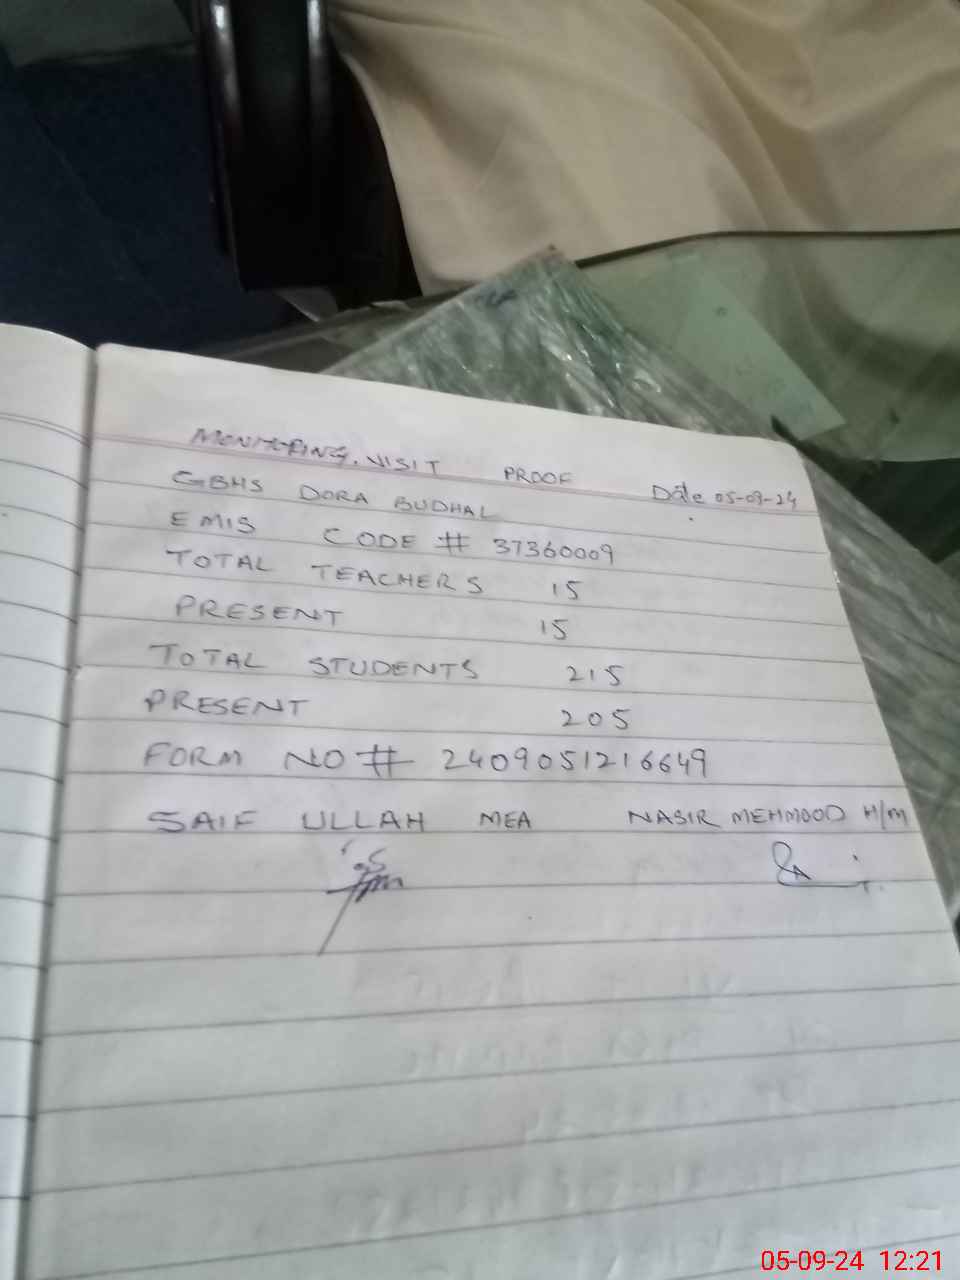 MONITORING. VISIT PROOF Date 05-09-24
GBHS DORA BUDHAL
EMIS CODE # 37360009
TOTAL TEACHERS 15
PRESENT 15
TOTAL STUDENTS 215
PRESENT 205
FORM NO # 2409051216649
SAIF ULLAH MEA NASIR MEHMOOD H/M
05-09-24 12:21